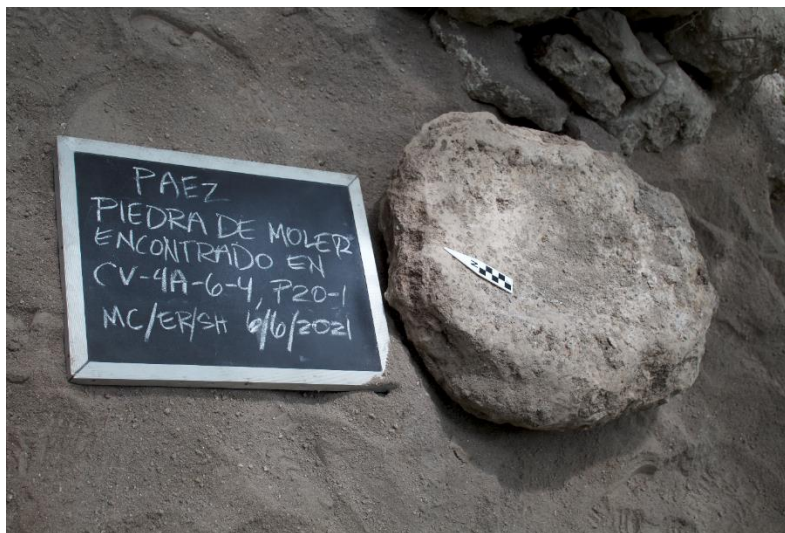 PAEZ
PIEDRA DE MOLER
ENCONTRADO EN
CV-4A-6-4, P20-1
MC/ER/SH 6/6/2021